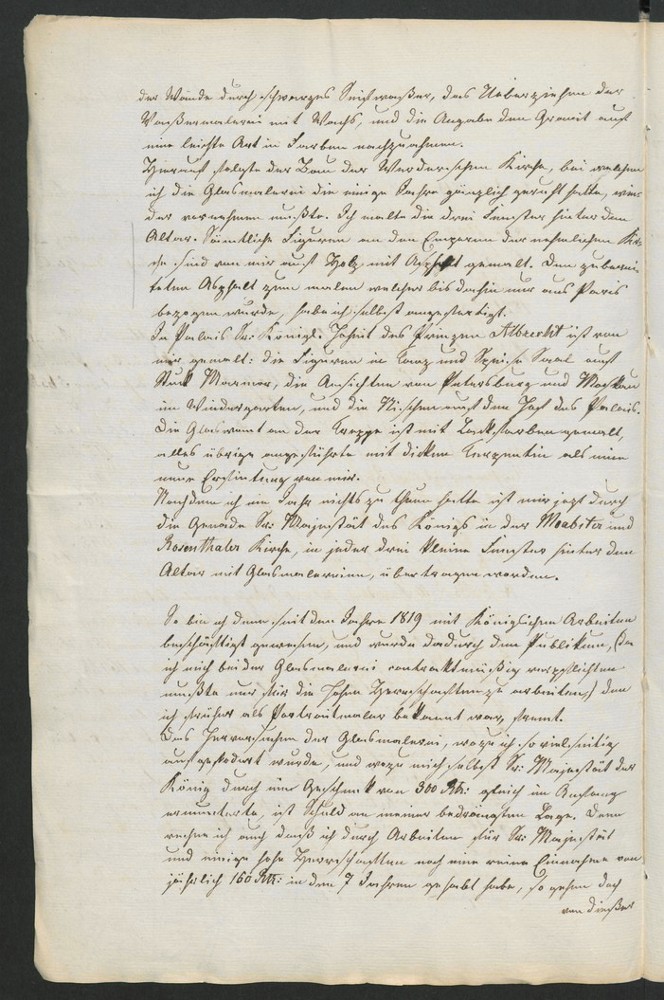 der Wände durch schwarzes Seifwasser, das Ueberziehen der
Wassermalerei mit Wachs, und die Angabe den Granit auf
eine leichte Art in Farben nachzuahmen.
Hierauf folgte der Bau der Werderschen Kirche, bei welchem
ich die Glasmalerei die einige Jahre gänzlich geruht hatte, wie
der vornehmen mußte. Ich malte die drei Fenster hinter dem
Altar. Sämtliche Figuren an den Emporen der nehmlichen Kir
che sind von mir auf Holz mit Asphalt gemalt. Den zuberei
teten Asphalt zum malen welcher bis dahin nur aus Paris
bezogen wurde, habe ich selbst angefertigt.
Im Palais Sr: Königl: Hoheit des Prinzen Albrecht ist von
mir gemalt: die Figuren im Tanz und Speise Saal auf
Stuck Marmor, die Ansichten von Petersburg und Moskau
im Wintergarten, und die Nischen auf dem Hof des Palais.
Die Glaswant an der Treppe ist mit Lackfarben gemalt,
alles übrige ausgeführte mit dicken Terpentin als eine
neue Erfindung von mir.
Nachdem ich ein Jahr nichts zu thun hatte ist mir jezt durch
die Genade Sr: Majestät des Königs in der Moabiter und
Rosenthaler Kirche, in jeder drei kleine Fenster hinter dem
Altar mit Glasmalereien, übertragen worden.
So bin ich denn seit dem Jahre 1819 mit Königlichen Arbeiten
beschäftigt gewesen, und wurde dadurch dem Publikum, (da
ich mich bei der Glasmalerei contraktmäßig verpflichten
mußte nur für die Hohen Herrschaften zu arbeiten,) dem
ich früher als Portraitmaler bekannt war, fremt.
Das Hervorsuchen der Glasmalerei, wozu ich so vielseitig
aufgefodert wurde, und wozu mich selbst Sr: Majestät der
König durch ein Geschenk von 300 Rth: gleich im Anfang
ermunterte, ist Schuld an meiner bedrängten Lage. Denn
rechne ich auch daß ich durch Arbeiten für Sr: Majestät
und einige hohe Herrschaften noch eine reine Einnahme von
jährlich 160 Rth: in den 7 Jahren gehabt habe, so gehen doch
von dieser